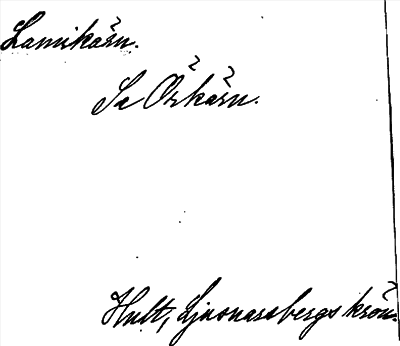 Lamikärn.
Se Örkärn.
Hult, Ljusnarsbergs krön.